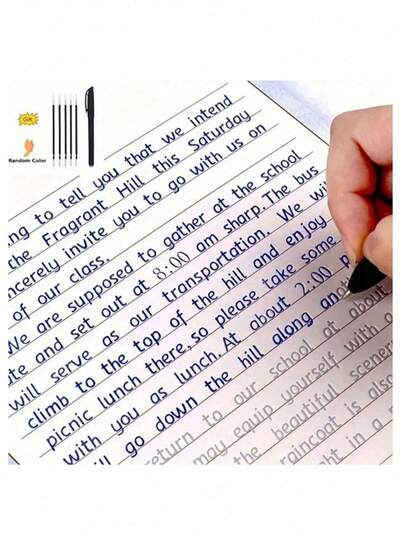 Gift
Random Color
ng to tell you that we intend
the Fragrant Hill this Saturday
ncerely invite you to go with us on
of our class.
We are supposed to gather at the school
te and set out at 8:00 am sharp. The bus
will serve as our transportation. We wi
climb to the top of the hill and enjoy
picnic lunch there, so please take some
with you as lunch. At about 2:00 p
ll go down the hill along an
return to our school at about
may equip yourself with a
the beautiful scener
raincoat is also
ht in a